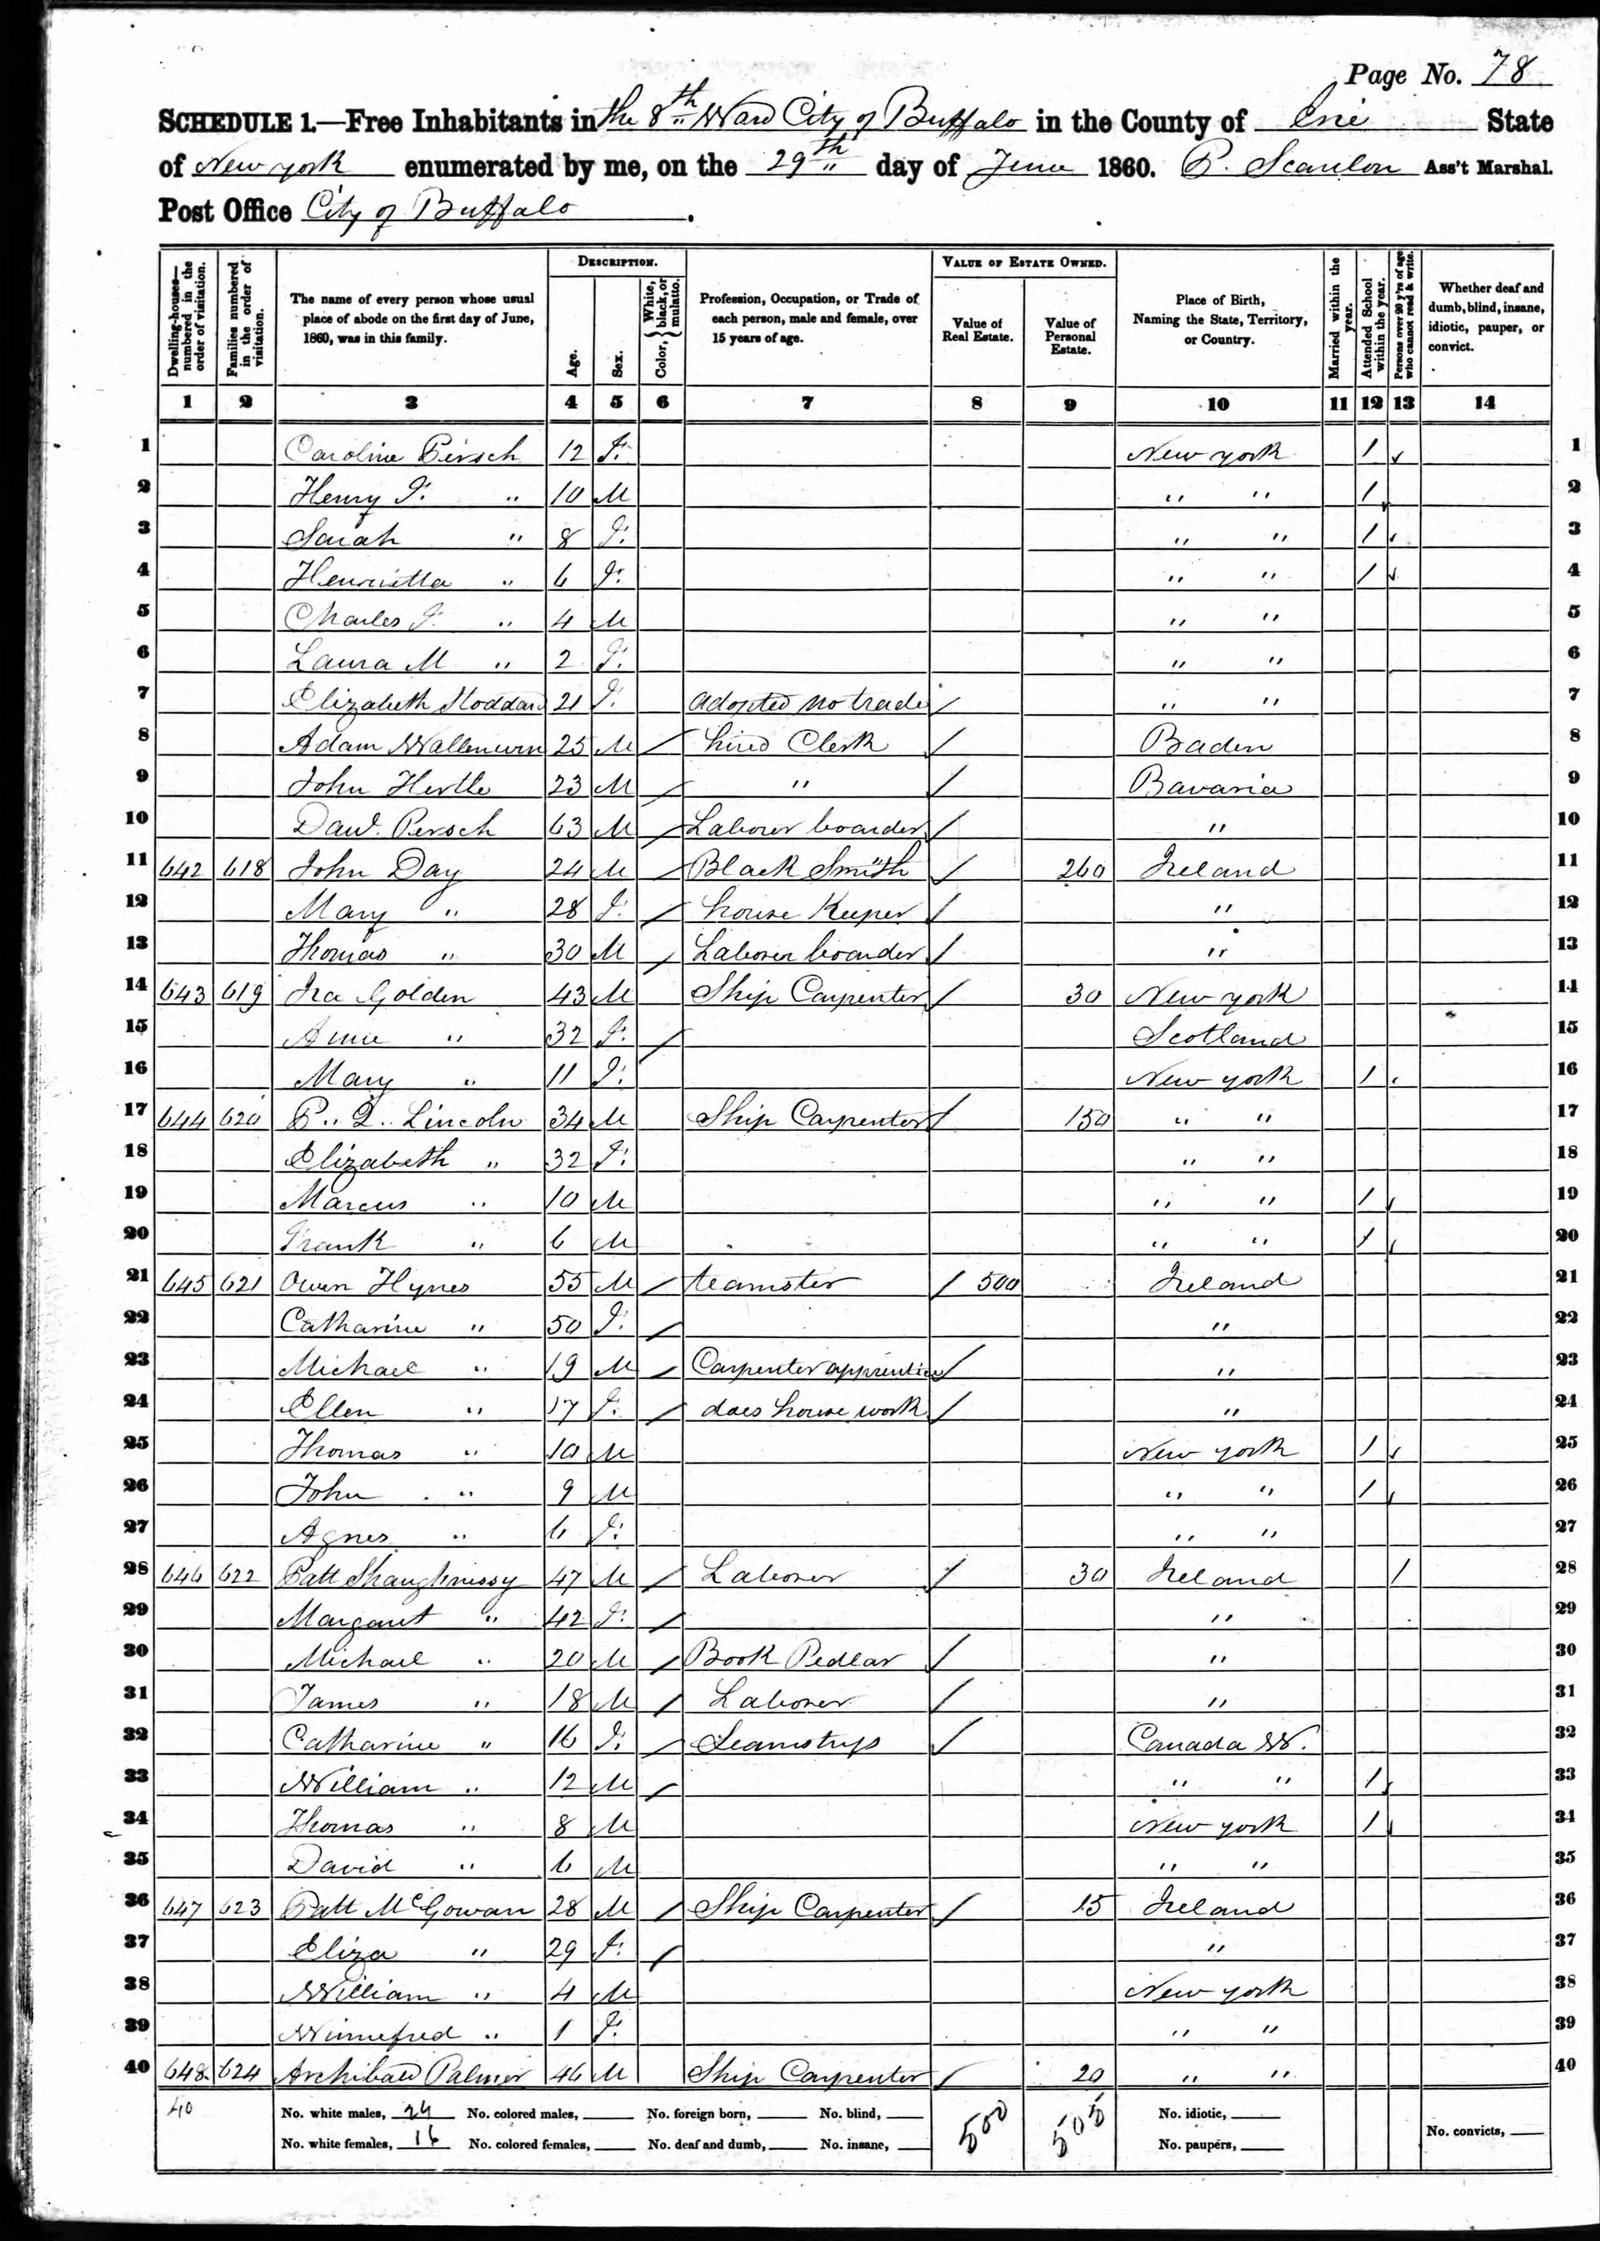 Page No. 78
SCHEDULE 1.—Free Inhabitants in the 8th Ward City of Buffalo in the County of Erie State
of New york enumerated by me, on the 29th day of June 1860. P. Scanlon Ass't Marshal.
Post Office City of Buffalo.
Dwelling-houses—numbered in the order of visitation.
Families numbered in the order of visitation.
The name of every person whose usual place of abode on the first day of June, 1860, was in this family.
DESCRIPTION.
Age.
Sex.
Color, { White, black, or mulatto.
Profession, Occupation, or Trade of each person, male and female, over 15 years of age.
VALUE OF ESTATE OWNED.
Value of Real Estate.
Value of Personal Estate.
Place of Birth, Naming the State, Territory, or Country.
Married within the year.
Attended School within the year.
Persons over 20 y'rs of age who cannot read & write.
Whether deaf and dumb, blind, insane, idiotic, pauper, or convict.
1 2 3 4 5 6 7 8 9 10 11 12 13 14
1 Caroline Persch 12 F. New york 1 1
2 Henry F. " 10 M " " 1 2
3 Sarah " 8 F. " " 1 3
4 Henrietta " 6 F. " " 1 4
5 Charles F. " 4 M " " 5
6 Laura M " 2 F. " " 6
7 Elizabeth Stoddard 21 F. adopted no trade / " " 7
8 Adam 25 M / hired Clerk / Baden 8
9 John Hertle 23 M / " / Bavaria 9
10 Dav'd. Persch 63 M / Laborer boarder / " 10
11 642 618 John Day 24 M / Black Smith / 260 Ireland 11
12 Mary " 28 F. / house Keeper / " 12
13 Thomas " 30 M / Laborer boarder / " 13
14 643 619 Ira Golden 43 M Ship Carpenter / 30 New york 14
15 Anne " 32 F. / Scotland 15
16 Mary " 11 F. New york 1 16
17 644 620 P. Q. Lincoln 34 M Ship Carpenter / 150 " " 17
18 Elizabeth " 32 F. " " 18
19 Marcus " 10 M " " 1 19
20 Frank " 6 M " " 1 20
21 645 621 Owen Hynes 55 M / teamster / 500 Ireland 21
22 Catharine " 50 F. / " 22
23 Michael " 19 M / Carpenter apprentice / " 23
24 Ellen " 17 F. / does house work / " 24
25 Thomas " 10 M New york 1 25
26 John " 9 M " " 1 26
27 Agnes " 6 F. " " 27
28 646 622 Patt Shaughnessy 47 M / Laborer / 30 Ireland 1 28
29 Margaret " 42 F. / " 29
30 Michael " 20 M / Book Pedlar / " 30
31 James " 18 M / Laborer / " 31
32 Catharine " 16 F. / Seamstress / Canada W. 32
33 William " 12 M / " " 1 33
34 Thomas " 8 M New york 1 34
35 David " 6 M " " 35
36 647 623 Patt McGowan 28 M / Ship Carpenter / 15 Ireland 36
37 Eliza " 29 F. / " 37
38 William " 4 M New york 38
39 Winnefred " 1 F. " " 39
40 648 624 Archibald Palmer 46 M Ship Carpenter / 20 " " 40
40 No. white males, 24 No. colored males, No. foreign born, No. blind, 500 505 No. idiotic,
No. white females, 16 No. colored females, No. deaf and dumb, No. insane, No. paupers, No. convicts,